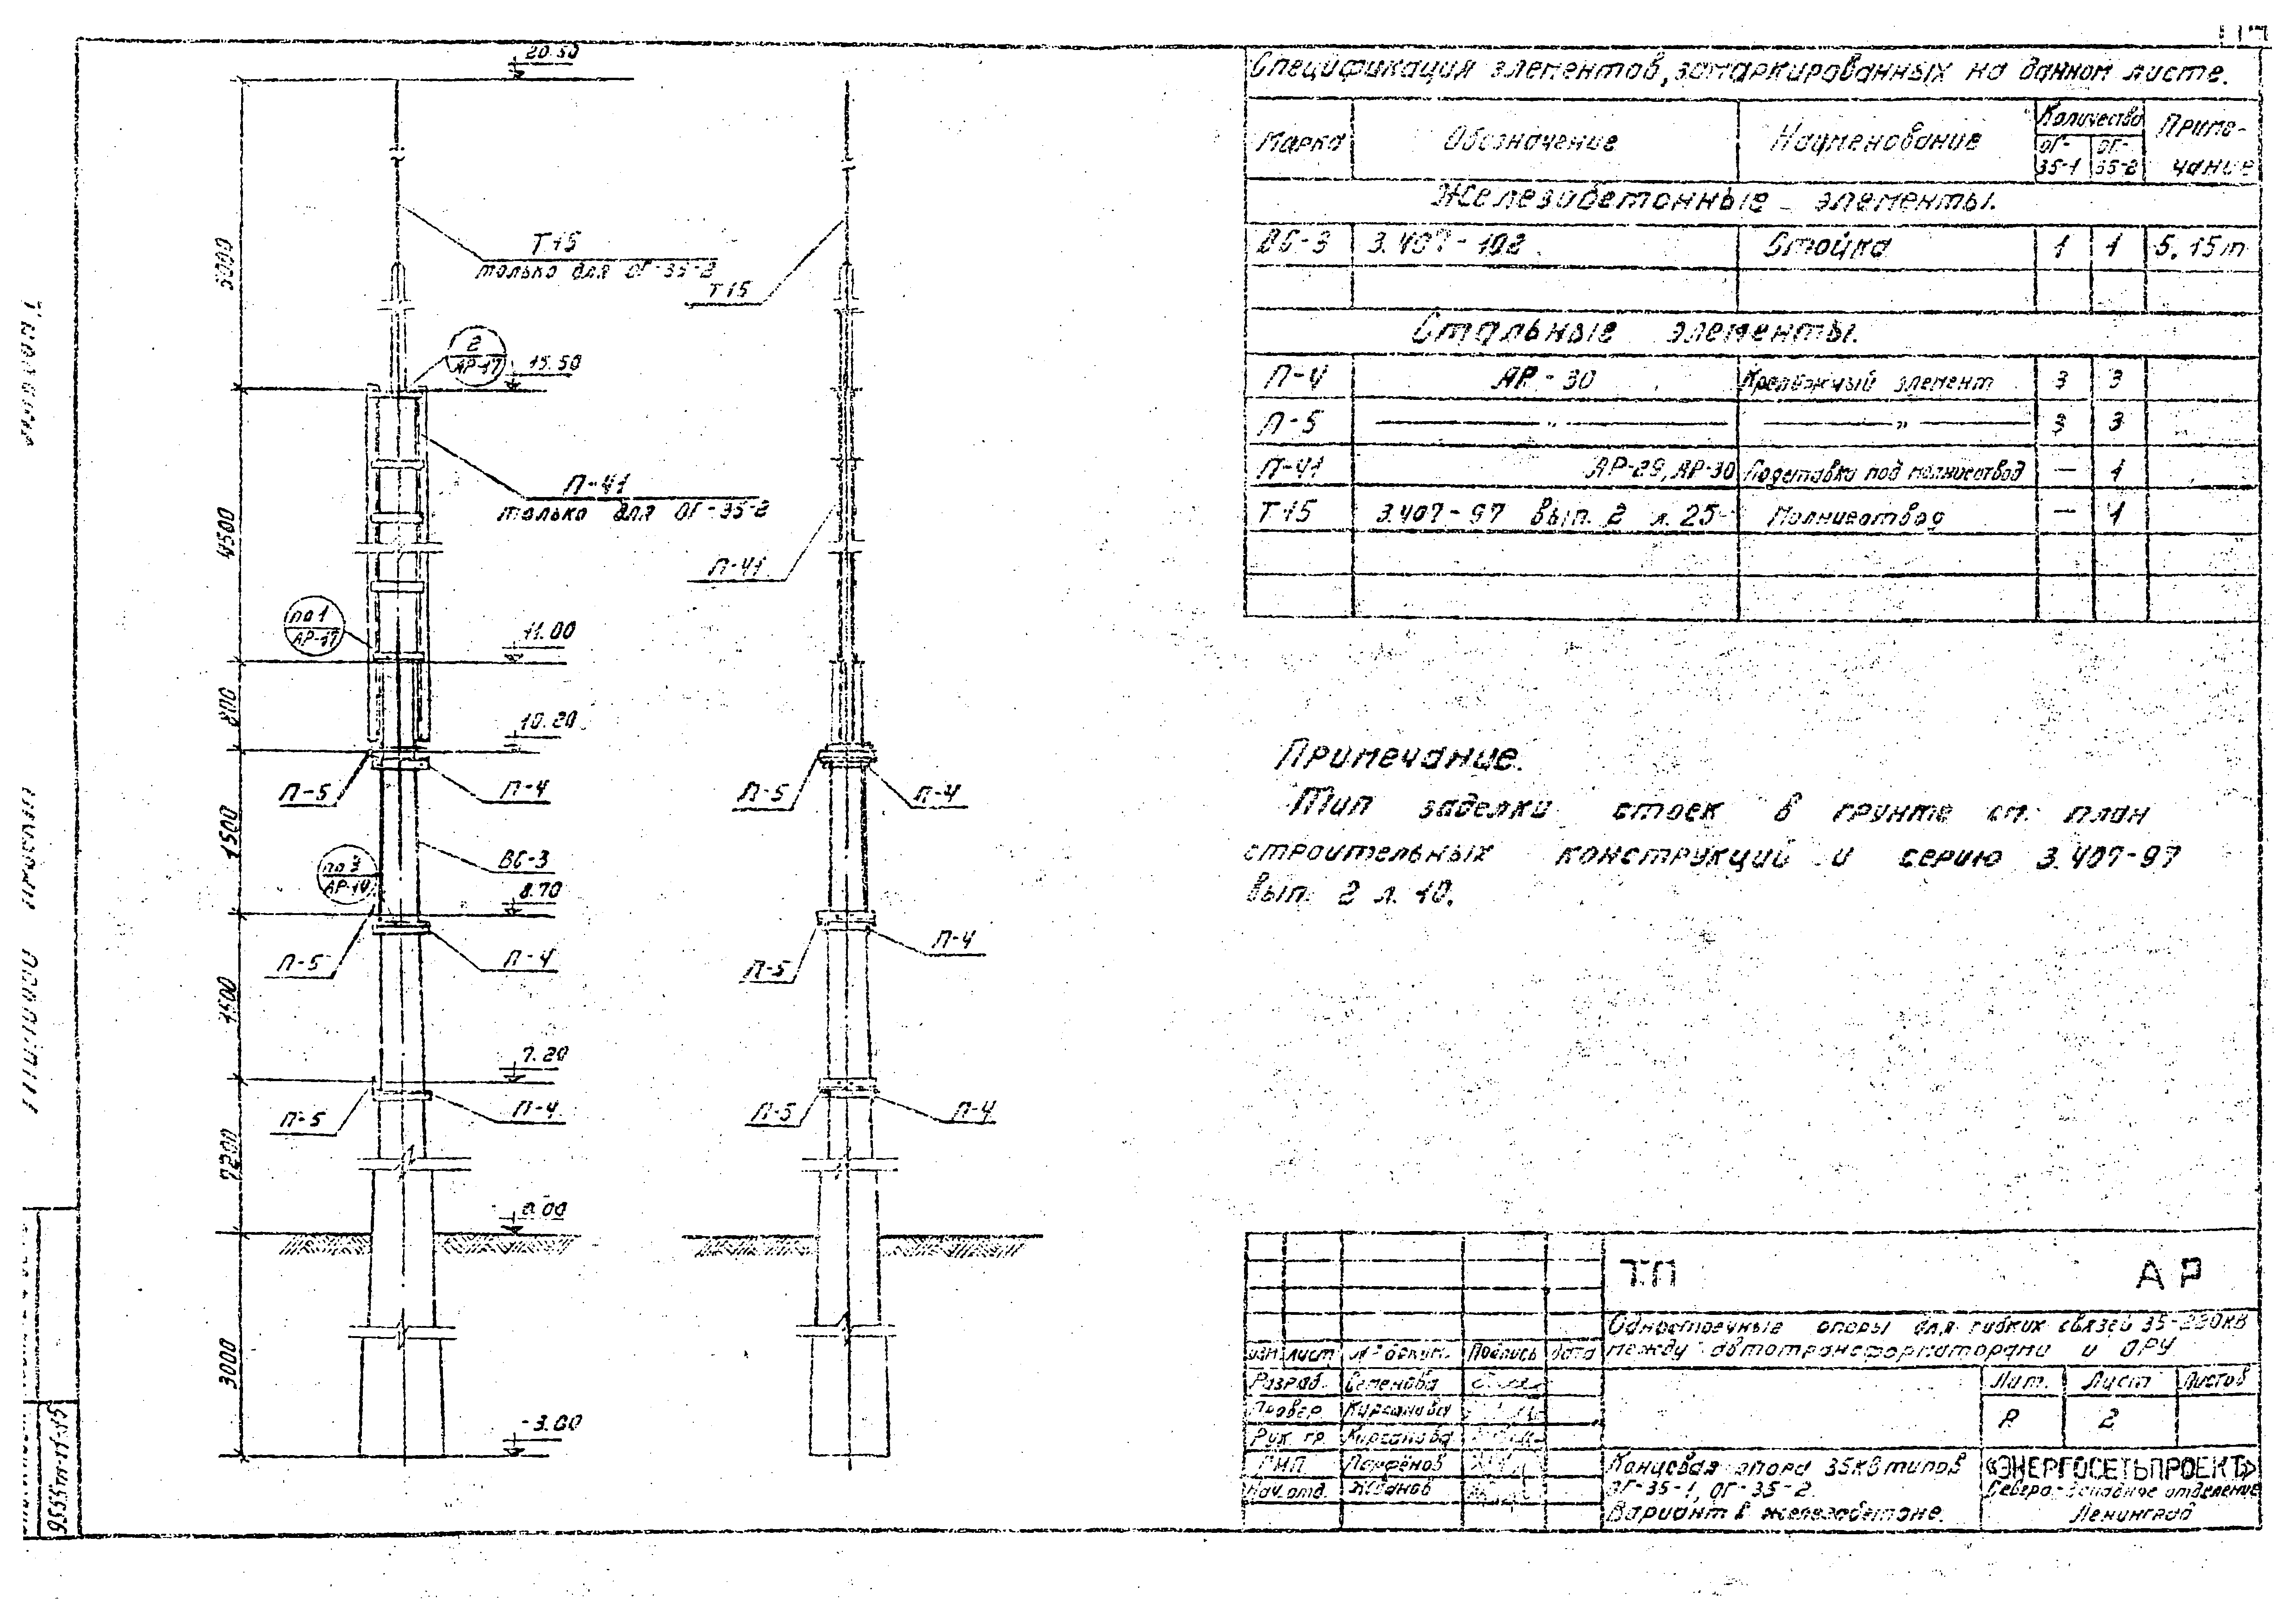 20.50
5000
Т15
только для ОГ-35-2
Т15
2
АР-17
15.50
П-41
только для ОГ-35-2
4500
П-41
по 1
АР-17
11.00
800
10.20
П-5
П-4
П-5
П-4
1500
ВС-3
по 3
АР-14
8.70
П-5
П-4
П-5
П-4
1500
7.20
П-5
П-4
П-5
П-4
7200
0.00
3000
-3.00
Спецификация элементов, замаркированных на данном листе.
Марка
Обозначение
Наименование
Количество
ОГ-35-1
ОГ-35-2
Приме-
чание
Железобетонные элементы.
ВС-3 3.407-102 Стойка 1 1 5.15т
Стальные элементы.
П-4 АР-30 Крепёжный элемент 3 3
П-5 — " — — " — 3 3
П-41 АР-29, АР-30 Подставка под молниеотвод — 1
Т15 3.407-97 вып. 2 л. 25 Молниеотвод — 1
Примечание.
Тип заделки стоек в грунте см. план
строительных конструкций и серию 3.407-97
вып. 2 л. 10.
ТП АР
Одностоечные опоры для гибких связей 35-220кВ
между автотрансформаторами и ОРУ
Изм. лист № докум. Подпись дата
Разраб. Семенова
Провер. Кирсанова
Рук. гр. Кирсанова
ГИП Парфёнов
Нач. отд. Жданов
Лит. Лист Листов
Р 2
Концевая опора 35кВ типов
ОГ-35-1, ОГ-35-2.
Вариант в железобетоне.
«ЭНЕРГОСЕТЬПРОЕКТ»
Северо-Западное отделение
Ленинград
9555тм-т1-15